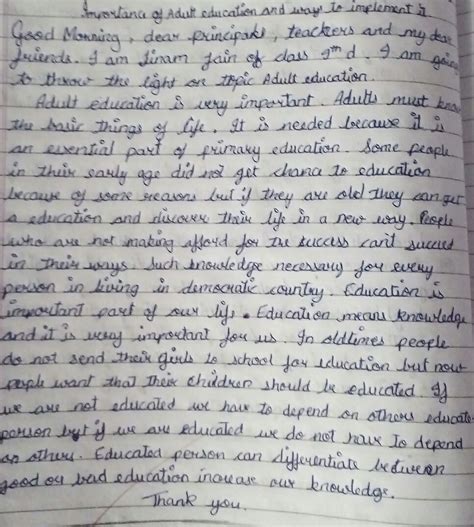 Importance of Adult education and ways to implement it
Good Morning, dear principal, teachers and my dear
friends. I am Jinam Jain of class 9th d. I am going
to throw the light on topic Adult education.
Adult education is very important. Adults must know
the basic things of life. It is needed because it is
an essential part of primary education. Some people
in their early age did not get chance to education
because of some reasons but if they are old they can get
a education and discover their life in a new way. People
who are not making afford for the success can't succeed
in their ways. Such knowledge necessary for every
person in living in democratic country. Education is
important part of our life. Education means knowledge
and it is very important for us. In oldtimes people
do not send their girls to school for education but now
people want that their children should be educated. If
we are not educated we have to depend on others educated
person but if we are educated we do not have to depend
on others. Educated person can differentiate between
good or bad education increase our knowledge.
Thank you.